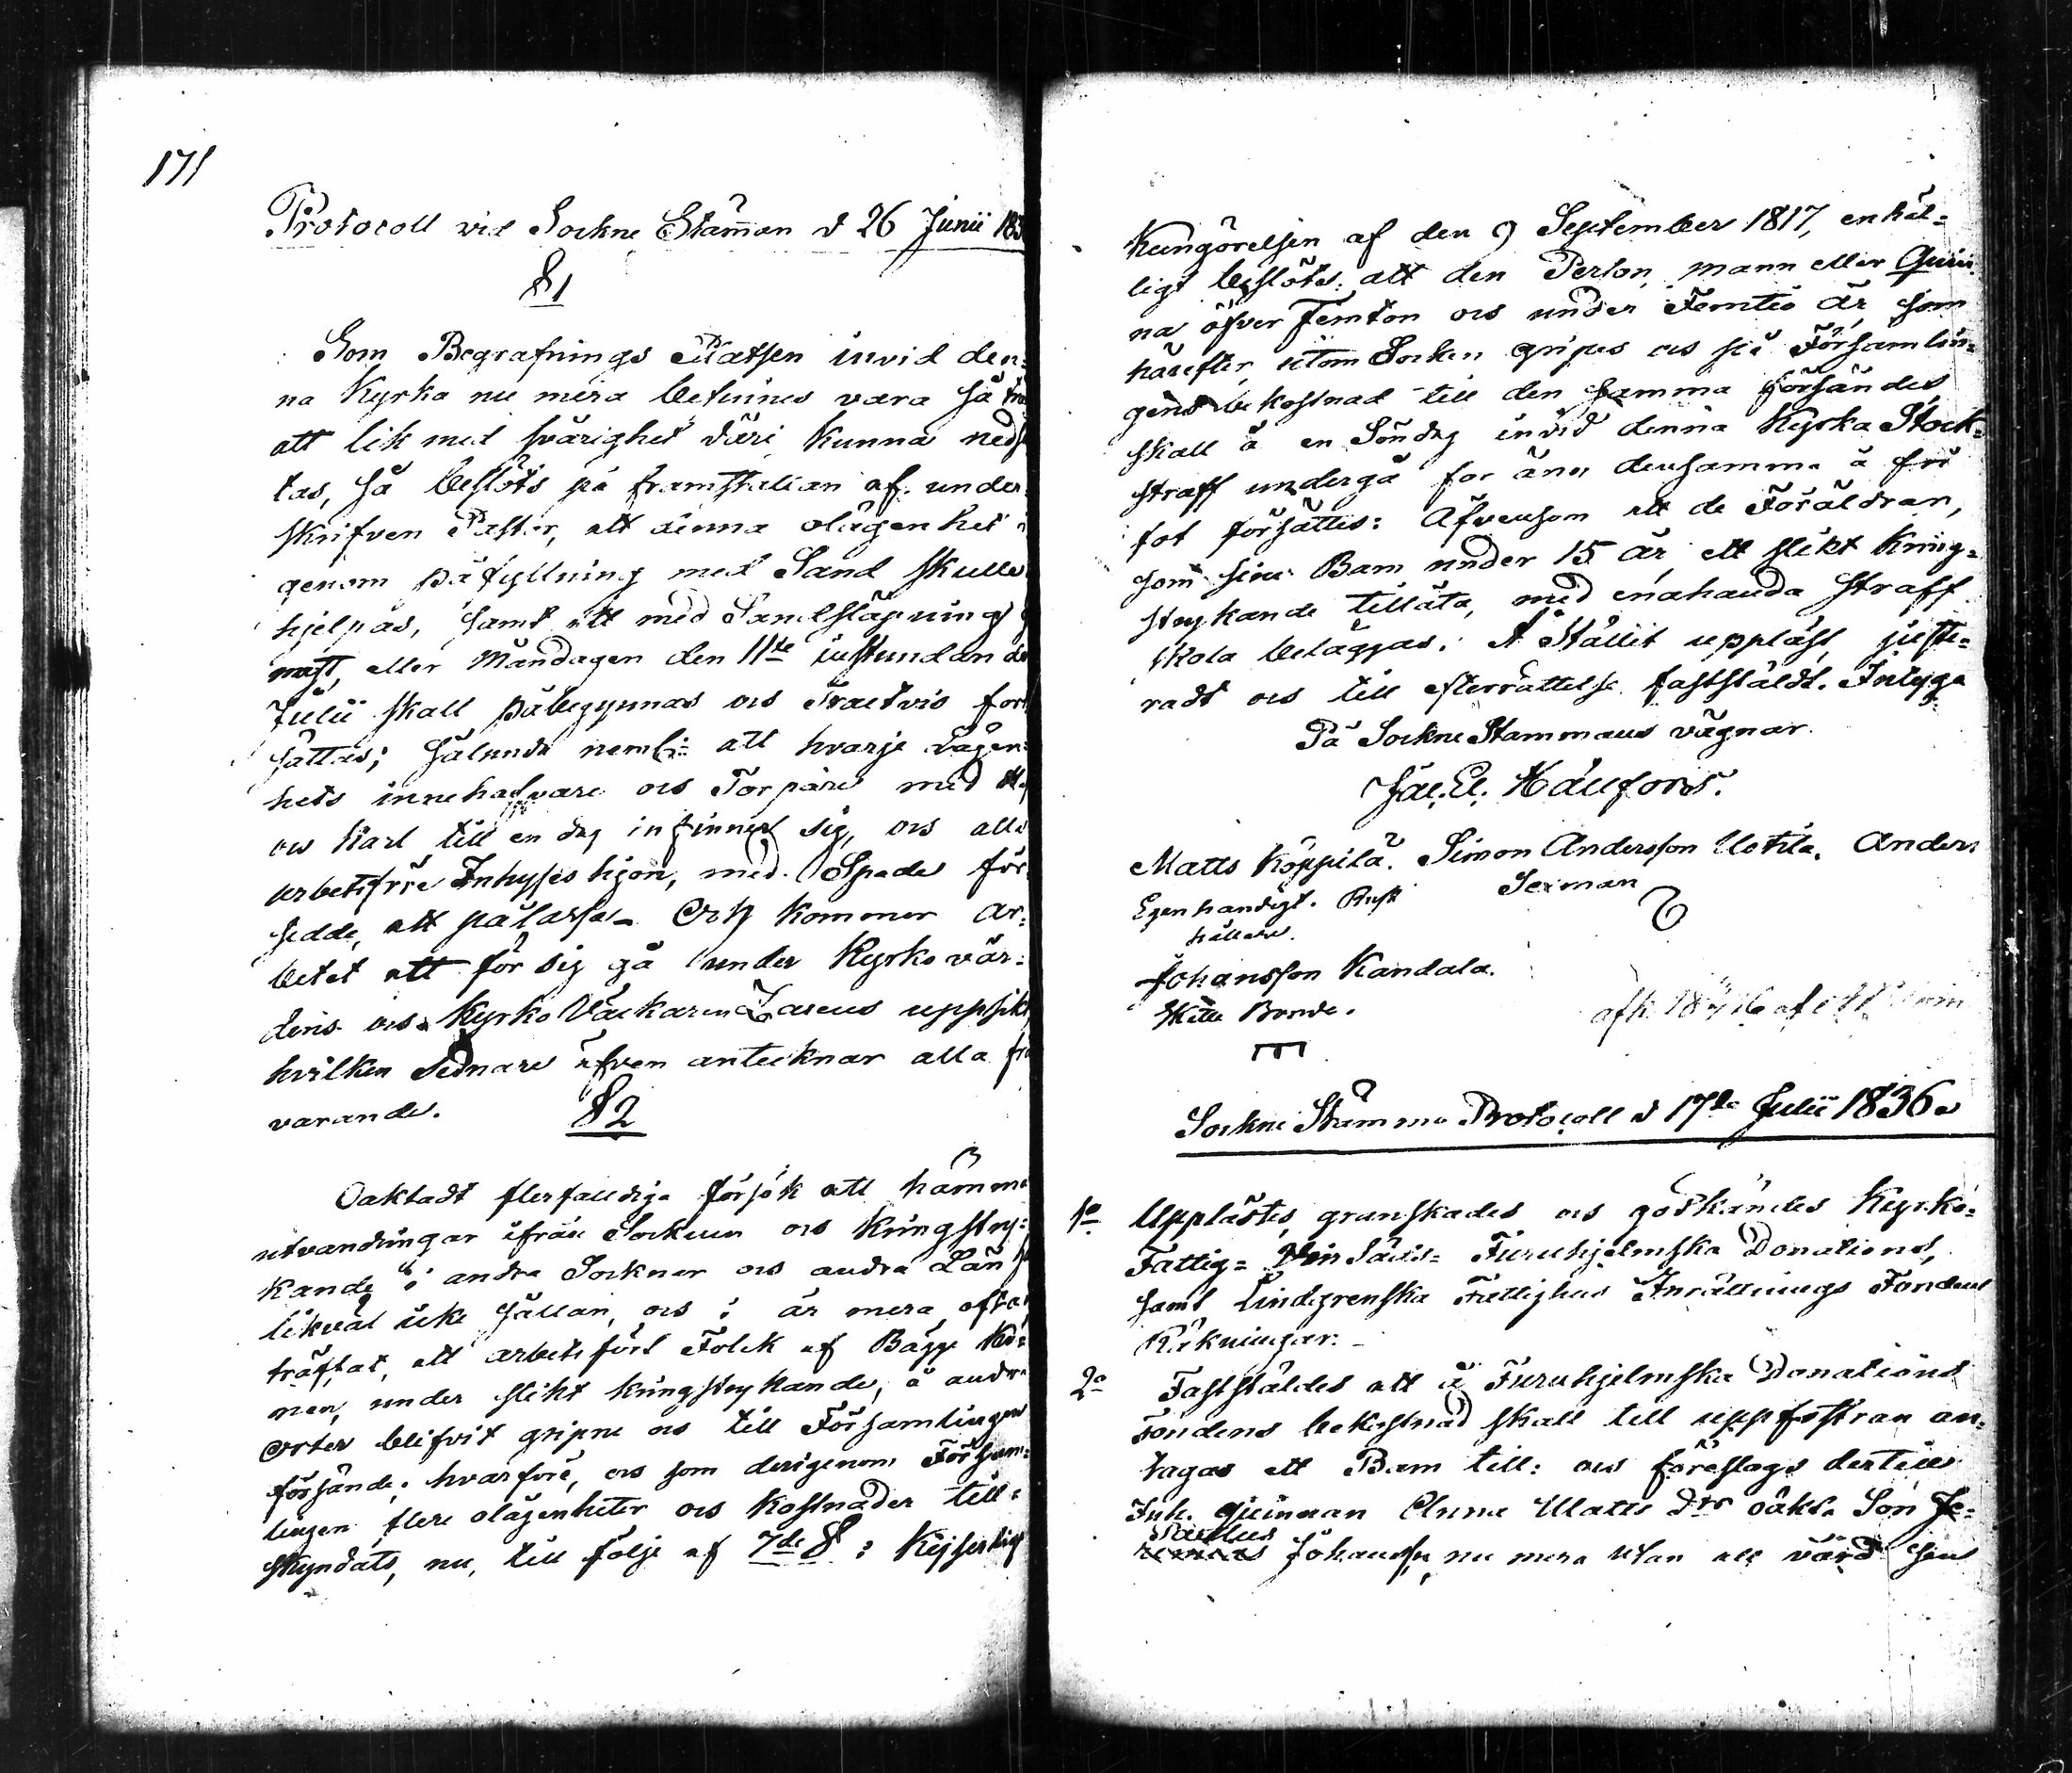 171
Protocoll vid Sockne Stämman d 26 Junii 183
§1
Som Begrafnings Platsen invid den=
na Kyrka nu mera befinnes vara så
att lik med svårighet däri kunna neds
tas, så beslöts på framställan af under
skrifven Pastor, att denna olägenhet
genom påfyllning med Sand skulle
hjelpas, samt att med Sandsläpning
näst, eller Måndagen den 11te instundande
Julii skall påbegynnas och Tractvis fort
sättas; sålunda neml: att hvarje Lägen=
hets innehafvare och Torpare med
och Karl till en dag infinner sig, och alla
arbetsföre Inhyses hjon, med Spade för
sedde, att pålassa. Och kommer ar=
betet att för sig gå under Kyrko vär=
dens och Kyrko Väckaren Zareus uppsikt
hvilken sednare äfven antecknar alla frå
varande.
§2
Oaktadt flerfalldiga försök att hämma
utvandringar ifrån Socknen och kringstry=
kande i andra Socknar och andra Län
likväl icke sällan, och i år mera ofta
träffat, att arbetsfört Folck af Bägge Kö=
nen, under slikt kringstrykande, å andra
Orter blifvit gripne och till Församlingen
försände; hvarföre, och som derigenom Försam=
lingen flere olägenheter och kostnader till=
skyndats, nu, till följe af 7de § i Kejserliga
Kungörelsen af den 9 September 1817, enhäl=
ligt beslöts: att den Person, mann eller Quin
na öfver Femton och under Femtio År, som
härefter utom Socken gripes och på Församlin=
gens bekostnad till den samma försändes
skall å en Söndag invid denna Kyrka Stock=
straff undergå för än densamma å fri
fot försättes: Äfvensom att de Föräldrar,
som sina Barn under 15 År, ett slikt kring=
strykande tillåta, med enahanda straff
skola beläggas. A Stället uppläst, juste=
radt och till efterrättelse fastställdt. Intyga
På Sockne Stammans vägnar.
Matts Köppilä. Simon Andersson Uotila. Anders
Egenhändigt. Rust Sexman
hållare.
Johansson Kandala.
Skatte Bonde.
Sockne Stämmo Protocoll d 17de Julii 1836
1o Upplästes, granskades och godkändes Kyrko=
Fattig= Vin Säds= Furuhjelmska Donations,
samt Lindegrenska Fattighus Inrättnings Fondens
Räkningar.
2o Fastställdes att å Furuhjelmska Donations
Fondens bekostnad skall till uppfostran an=
tagas ett Barn till: och föreslogs dertill
Inh. Quinnan Anna Matts Drs oäkta Son
Johansson, nu mera utan all vård sen